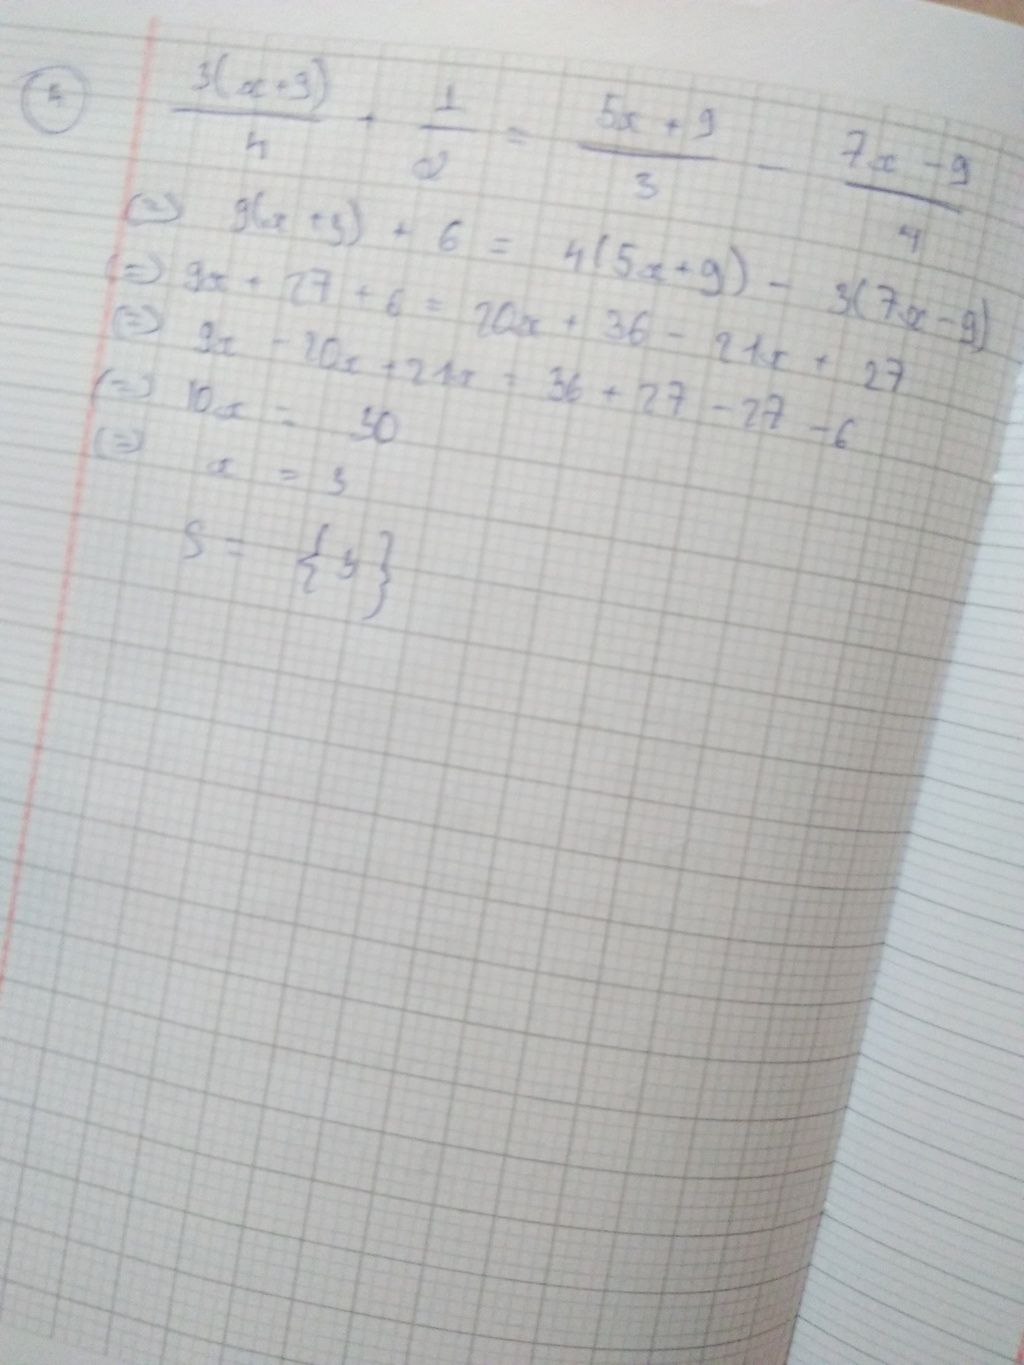 4
3(x+3)/4 + 1/2 = 5x+9/3 - 7x-9/4
(=) 9(x+3) + 6 = 4(5x+9) - 3(7x-9)
(=) 9x + 27 + 6 = 20x + 36 - 21x + 27
(=) 9x - 20x + 21x = 36 + 27 - 27 - 6
(=) 10x = 30
(=) x = 3
S = {3}